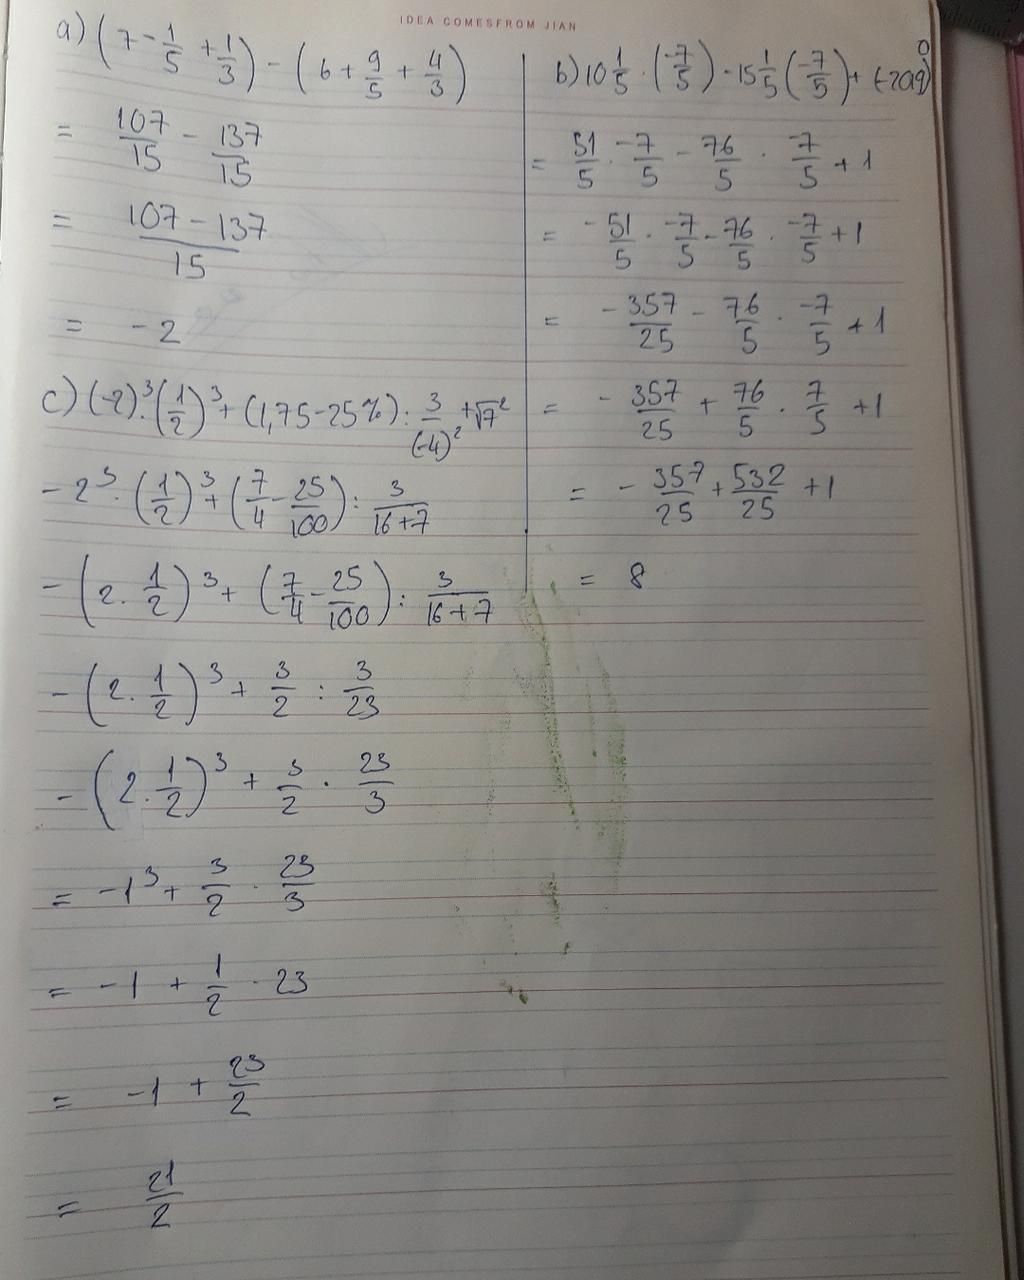 IDEA COMESFROM JIAN
a) (7 - 1/5 + 1/3) - (6 + 9/5 + 4/3)
= 107/15 - 137/15
= (107 - 137)/15
= -2
b) 10 1/5 · (-7/5) - 15 1/5 (-7/5) + (-2019)^0
= 51/5 · -7/5 - 76/5 · -7/5 + 1
= -51/5 · -7/5 - 76/5 · -7/5 + 1
= -357/25 - 76/5 · -7/5 + 1
= -357/25 + 76/5 · 7/5 + 1
= -357/25 + 532/25 + 1
= 8
c) (-2)^3 · (1/2)^3 + (1,75 - 25%) : 3/(-4)^2 + √7^2
- 2^3 · (1/2)^3 + (7/4 - 25/100) : 3/(16+7)
- (2 · 1/2)^3 + (7/4 - 25/100) : 3/(16+7)
- (2 · 1/2)^3 + 3/2 : 3/23
- (2 · 1/2)^3 + 3/2 · 23/3
= -1^3 + 3/2 · 23/3
= -1 + 1/2 · 23
= -1 + 23/2
= 21/2